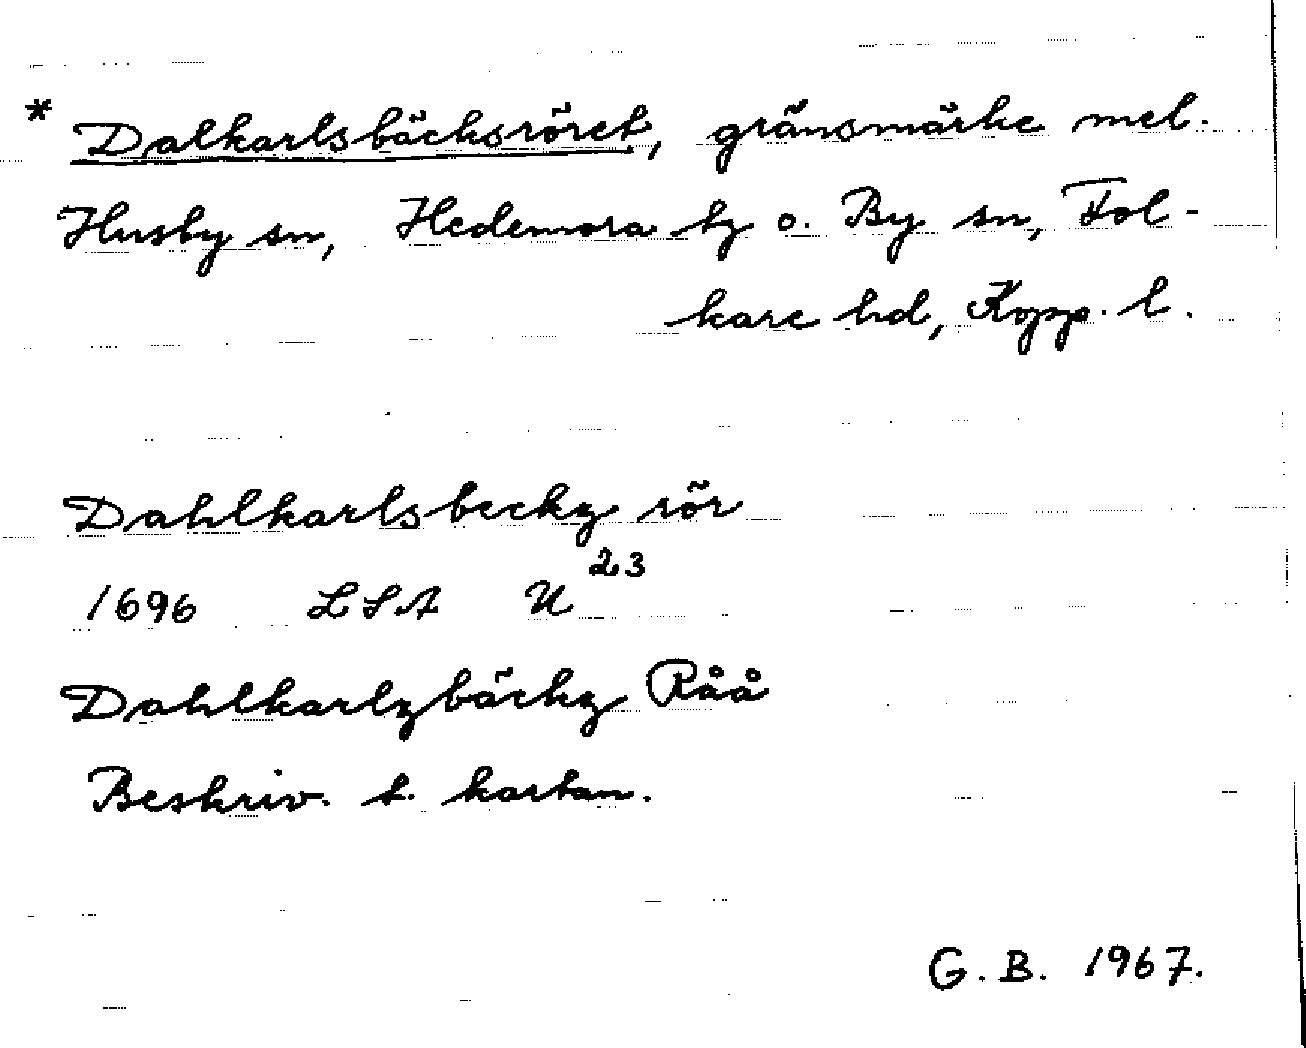 * Dalkarlsbäcksröret, gränsmärke mel.
Husby sn, Hedemora tg o. By sn, Fol-
kare hd, Kopp. l.
Dahlkarlsbeckz rör
1696 LSA U 23
Dahlkarlzbäckz Råå
Beskriv. t. kartan.
G. B. 1967.